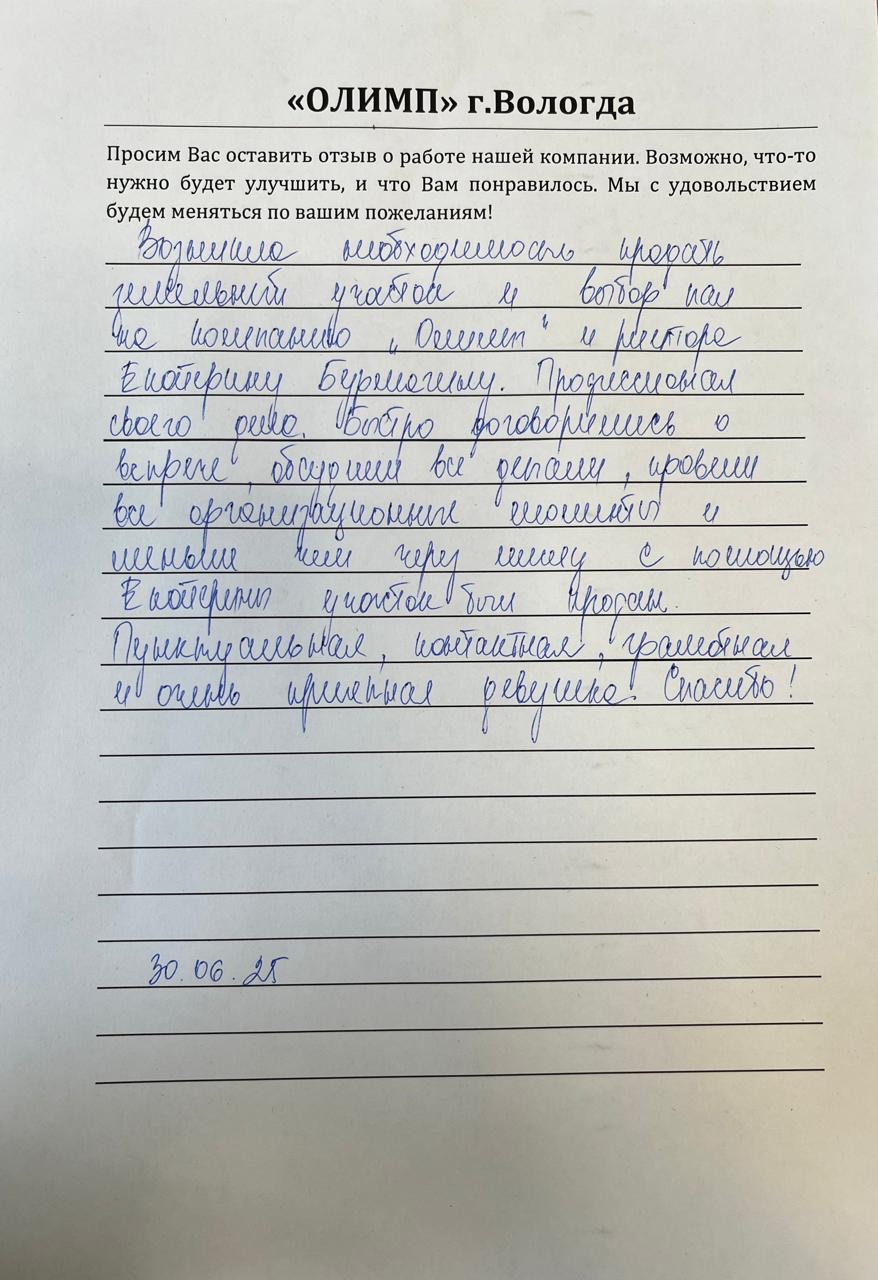 «ОЛИМП» г.Вологда
Просим Вас оставить отзыв о работе нашей компании. Возможно, что-то
нужно будет улучшить, и что Вам понравилось. Мы с удовольствием
будем меняться по вашим пожеланиям!
Возникла необходимость продать
земельный участок и выбор пал
на компанию „Олимп“ и риэтора
Екатерину Бурмагину. Профессионал
своего дела. Быстро договорились о
встрече, обсудили все детали, провели
все организационные моменты и
меньше чем через месяц с помощью
Екатерины участок был продан.
Пунктуальная, контактная, грамотная
и очень приятная девушка. Спасибо!
30.06.25